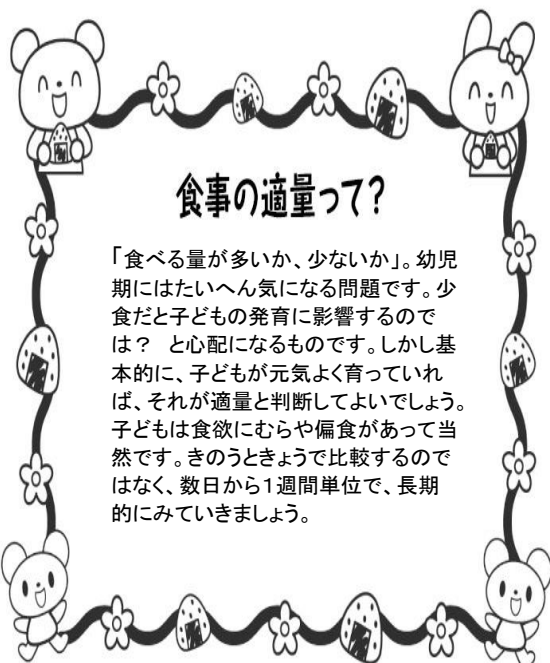 食事の適量って?
「食べる量が多いか、少ないか」。幼児
期にはたいへん気になる問題です。少
食だと子どもの発育に影響するので
は?　と心配になるものです。しかし基
本的に、子どもが元気よく育っていれ
ば、それが適量と判断してよいでしょう。
子どもは食欲にむらや偏食があって当
然です。きのうときょうで比較するので
はなく、数日から1週間単位で、長期
的にみていきましょう。